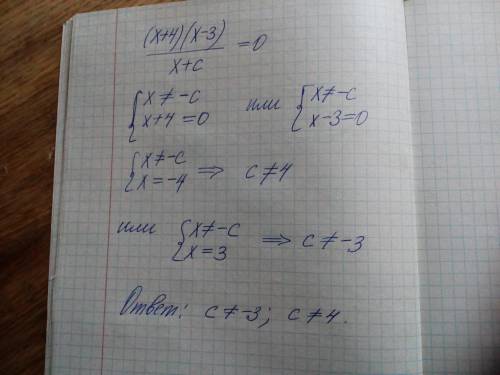 (x+4)(x-3)/x+c =0
{x≠-c x+4=0 или {x≠-c x-3=0
{x≠-c x=-4 ⇒ c≠4
или {x≠-c x=3 ⇒ c≠-3
Ответ: c≠-3; c≠4.